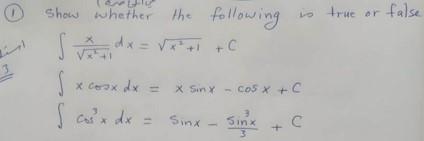 ① Show whether the following is true or false
∫ x/√(x²+1) dx = √(x²+1) + C
3
∫ x cosx dx = x sinx - cosx + C
∫ cos³x dx = sinx - sin³x/3 + C